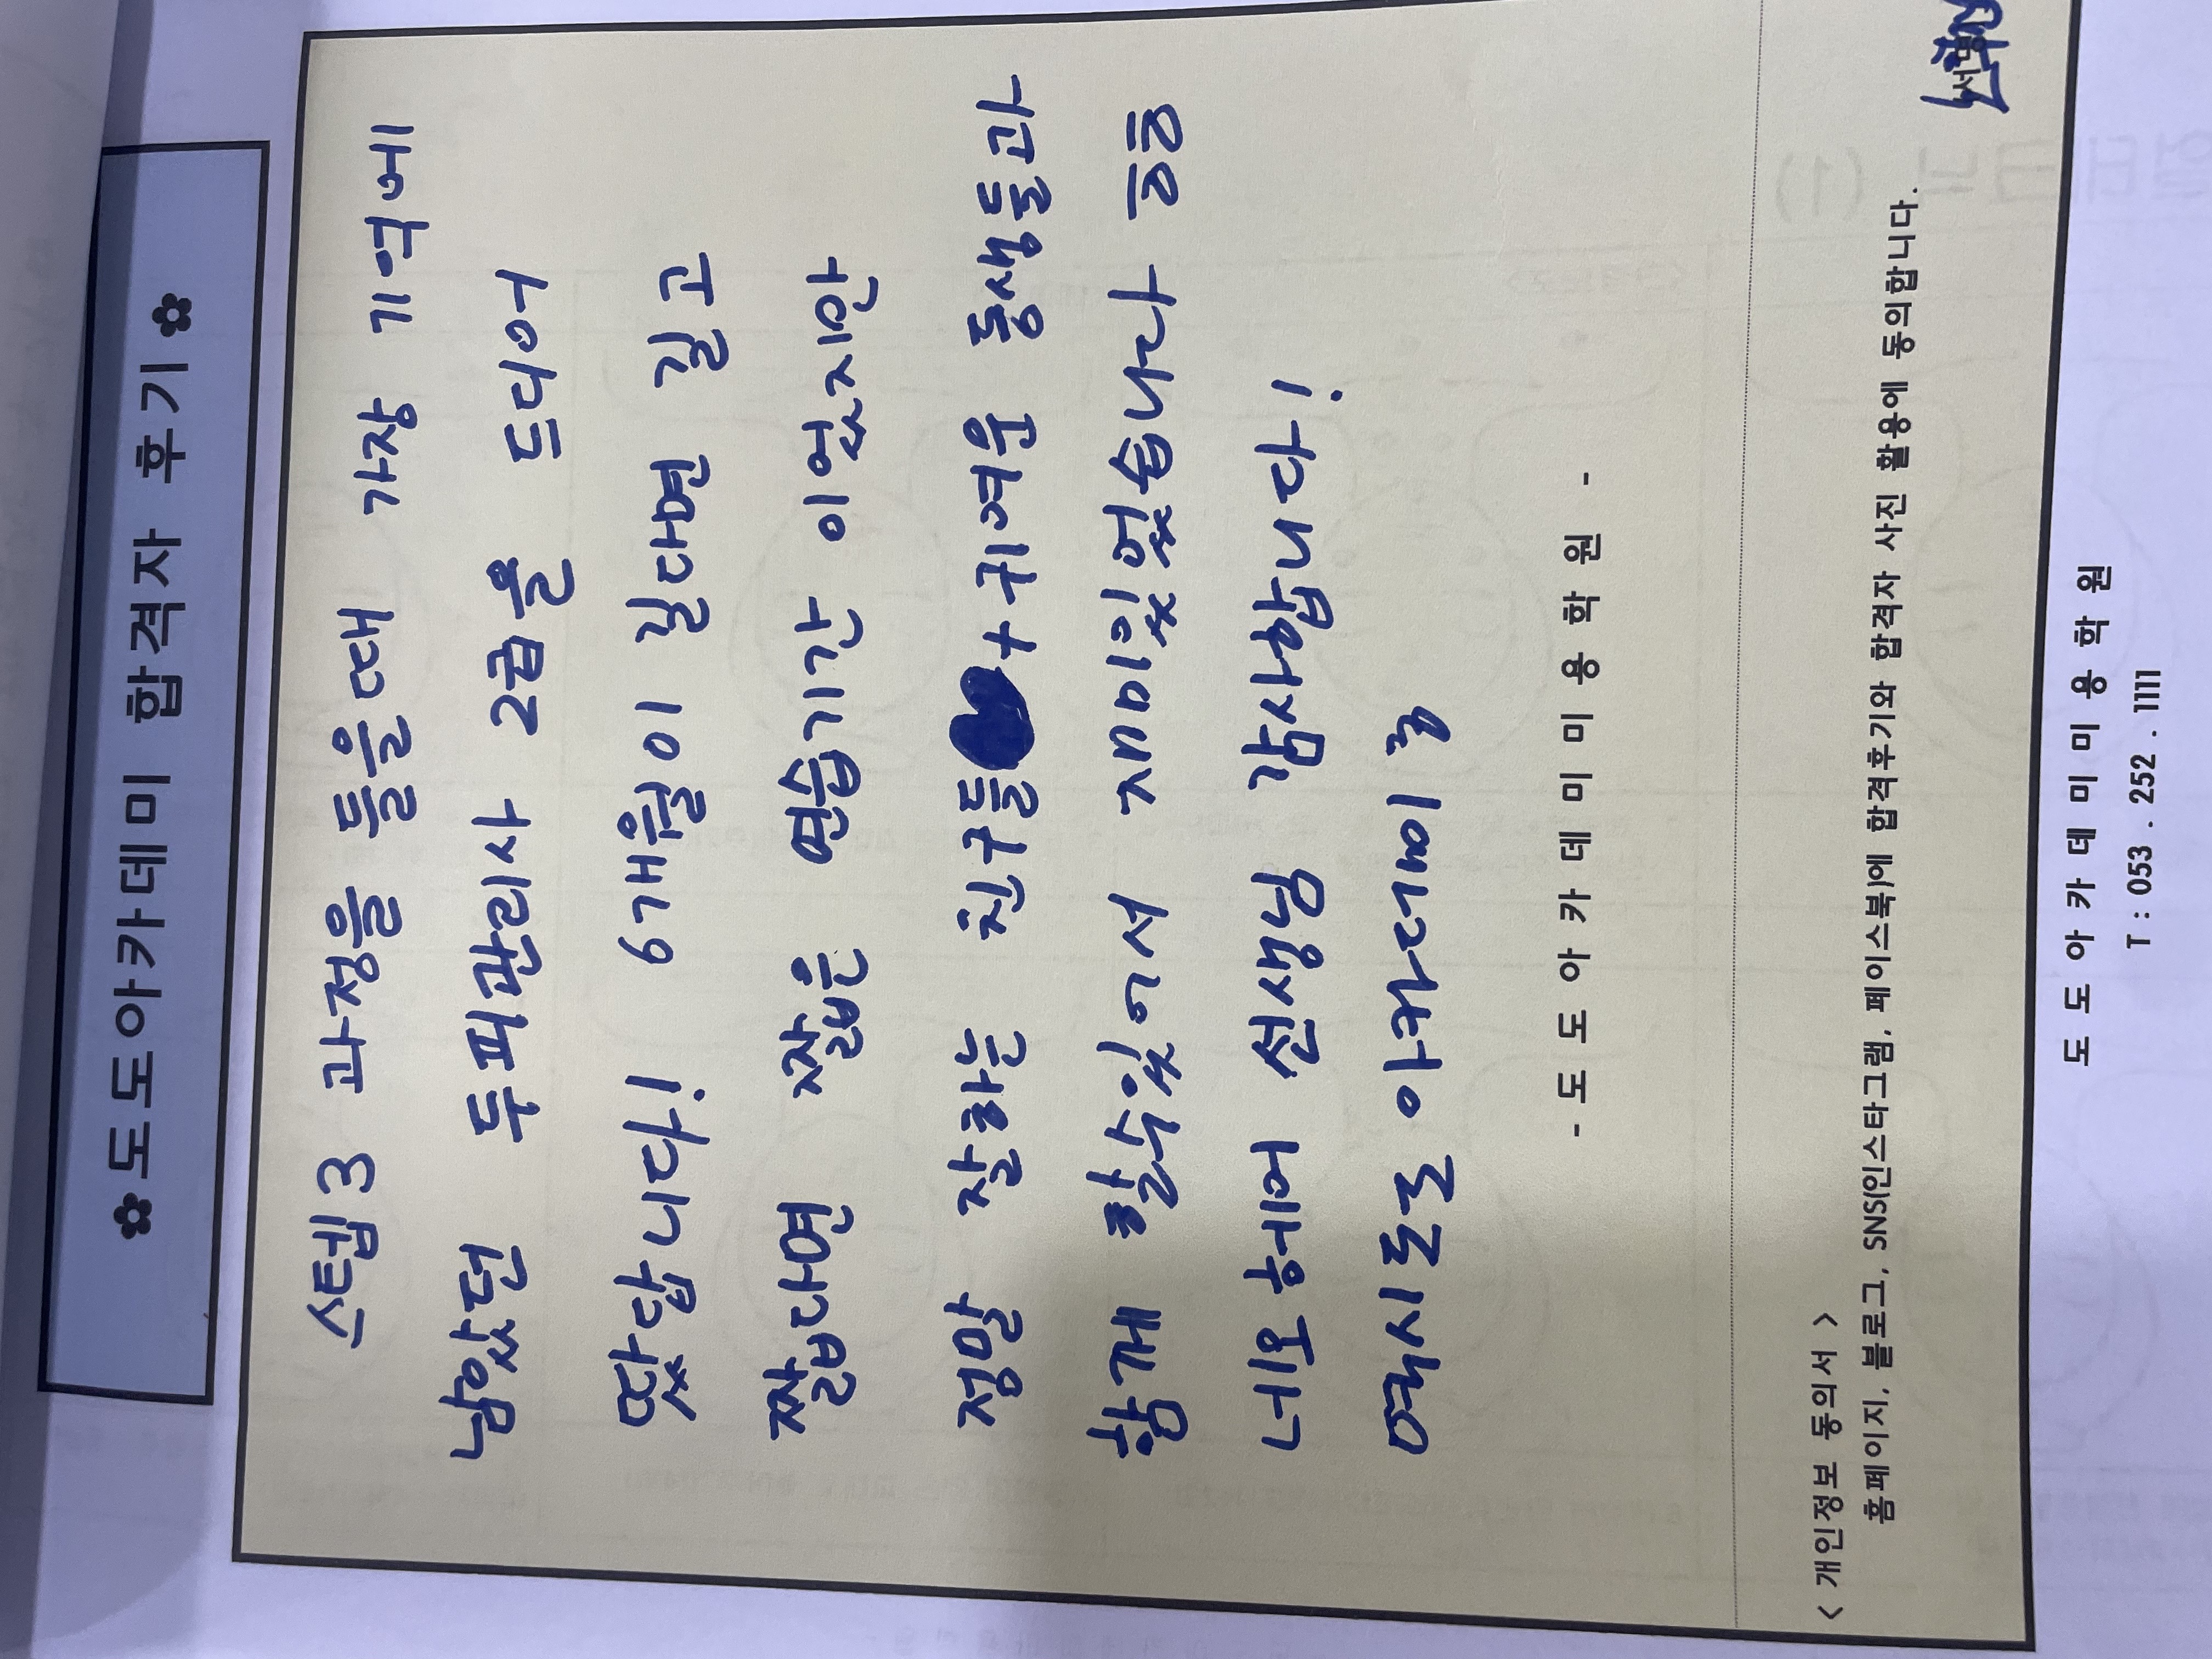 ✿도도아카데미 합격자 후기✿
스텝3 과정을 들을때 가장 기억에
남았던 두피관리사 2급을 드디어
땄답니다! 6개월이 길다면 길고
짧다면 짧은 연습기간 이었지만
정말 잘하는 친구들 + 귀여운 동생들과
함께 할수있어서 재미있었습니다 ㅎㅎ
네오헤어 선생님 감사합니다!
역시도도아카데미를
- 도 도 아 카 데 미 미 용 학 원 -
< 개인정보 동의서 >
홈페이지, 블로그, SNS(인스타그램, 페이스북)에 합격후기와 합격자 사진 활용에 동의합니다.
서명
도 도 아 카 데 미 미 용 학 원
T : 053 . 252 . 1111